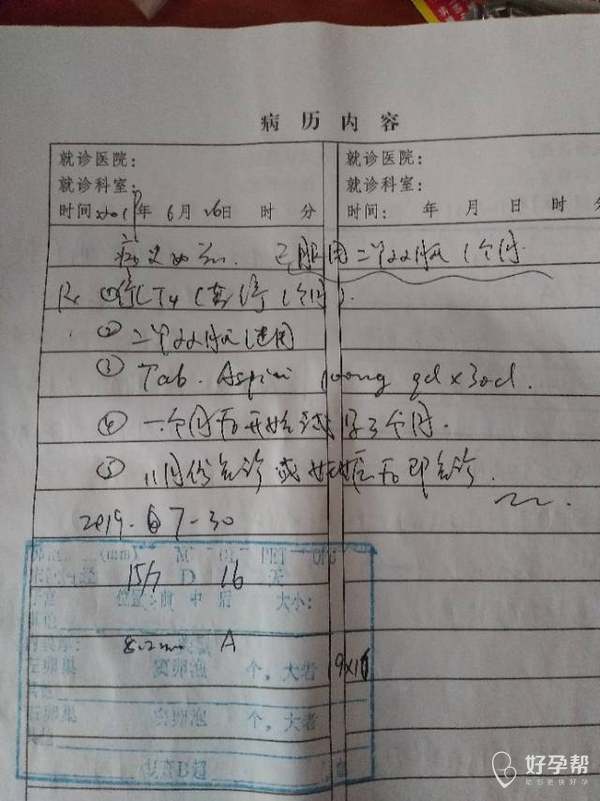 病 历 内 容
就诊医院:
就诊科室:
时间 年 6月 26日 时 分
就诊医院:
就诊科室:
时间: 年 月 日 时 分
病史如前. 已服用二甲双胍1个月
① 停LT4(暂停1个月).
② 二甲双胍
③ Tab. Aspirin 100mg qd x30d.
④ 一个月后开始试孕3个月.
⑤ 11月份复诊或妊娠后即复诊.
2019. 7-30
(mm)
15/7 D 16 天
位置:前 中 后 大小:
8.2mm A
左卵巢 卵泡 个,大者 19x16
右卵巢 卵泡 个,大者
B超
好孕帮